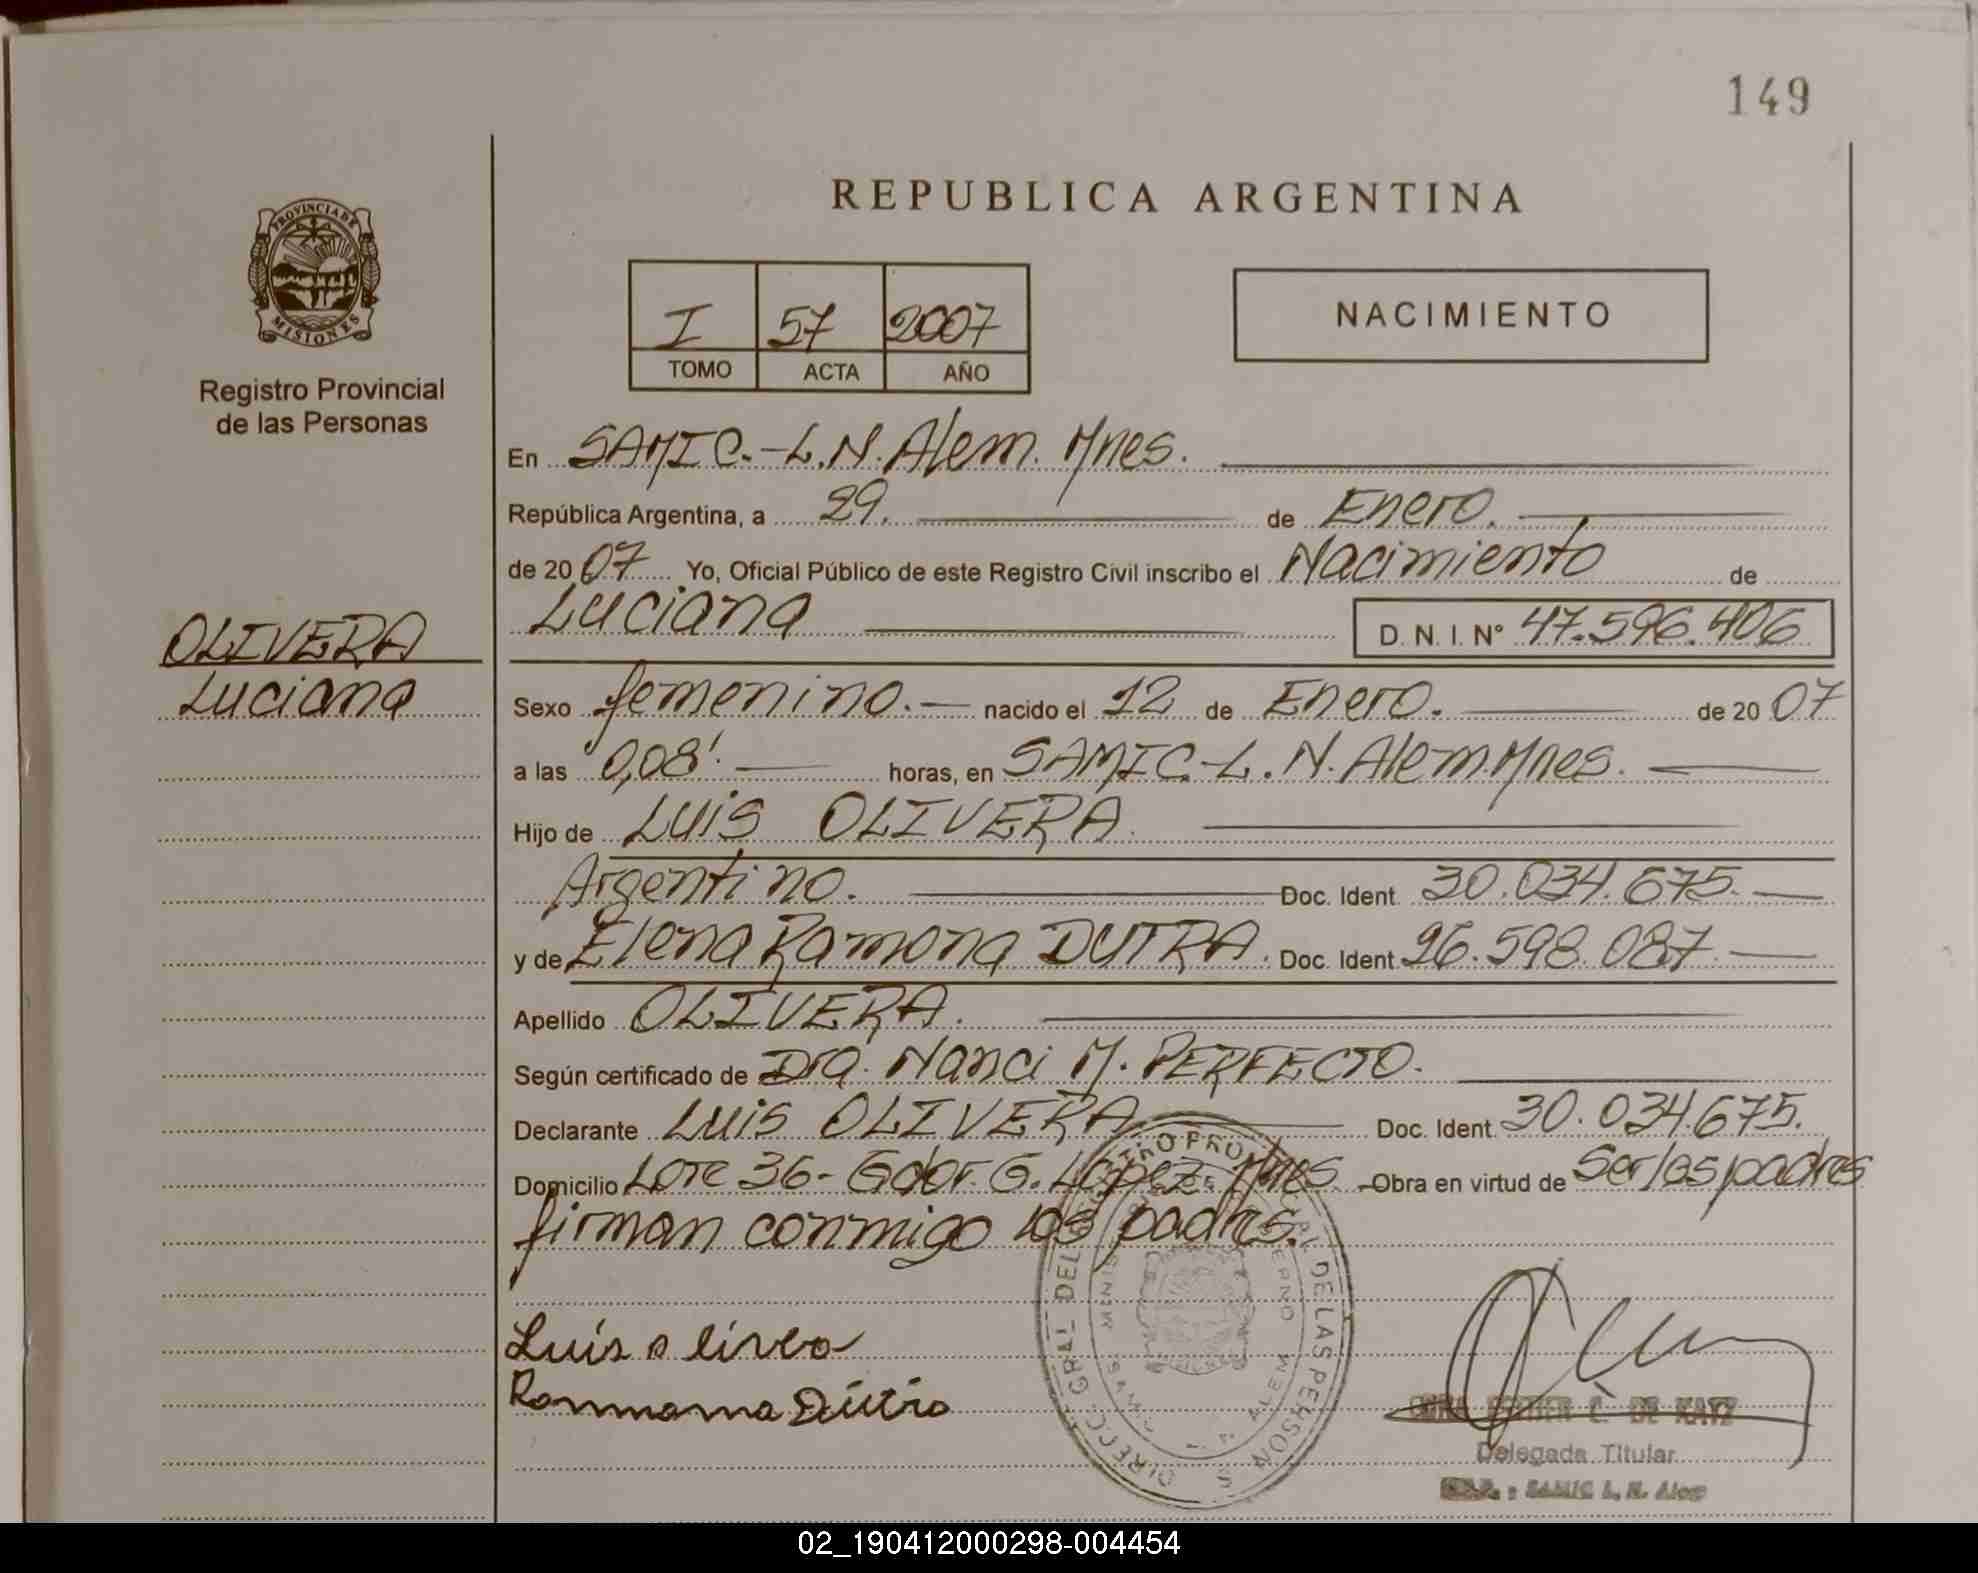 149
REPUBLICA ARGENTINA
PROVINCIA DE
MISIONES
Registro Provincial
de las Personas
I 57 2007
TOMO ACTA AÑO
NACIMIENTO
En SAMIC.-L.N.Alem. Mnes.
República Argentina, a 29. de Enero.
de 2007 Yo, Oficial Público de este Registro Civil inscribo el Nacimiento de
Luciana D. N. I. N° 47.596.406
OLIVERA
Luciana
Sexo femenino.- nacido el 12 de Enero. de 2007
a las 0,08'. horas, en SAMIC.-L.N.Alem.Mnes.
Hijo de Luis OLIVERA.
Argentino. Doc. Ident. 30.034.675.
y de Elena Ramona DUTRA. Doc. Ident. 26.598.087.
Apellido OLIVERA.
Según certificado de Dra. Nanci M. PERFECTO.
Declarante Luis OLIVERA Doc. Ident. 30.034.675.
Domicilio Lote 36- Gdor. G. López Mnes. Obra en virtud de Ser los padres
firman conmigo los padres.
DIRECC. GRAL. DEL DE LAS PERSONAS
ALEM
Luis
C. DE KATZ
Delegada Titular
SAMIC L. N. Alem
02_190412000298-004454